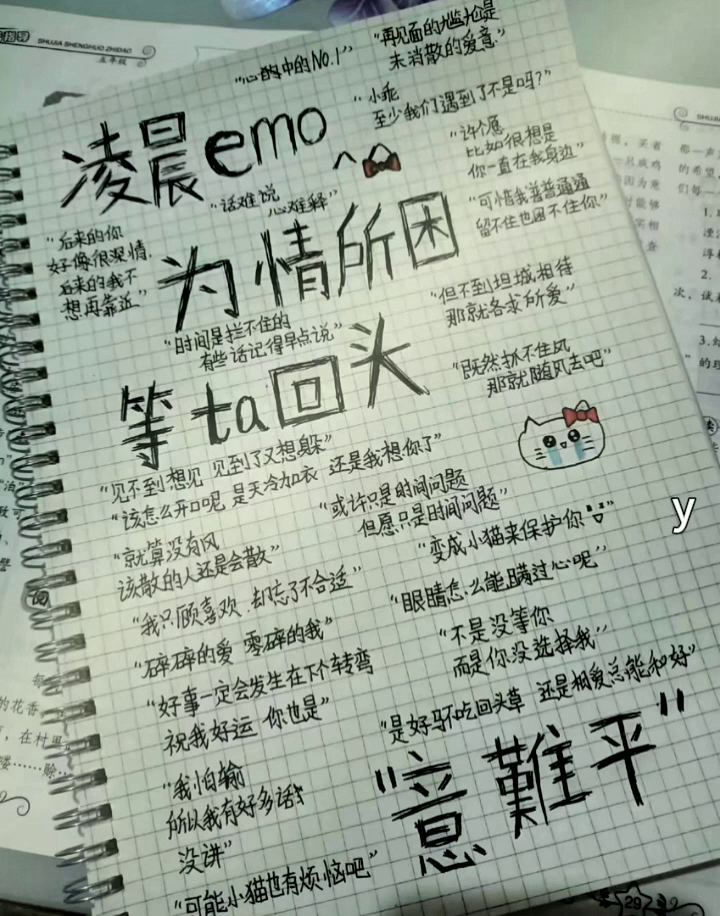 "心的中的NO.1"
"再见面的尴尬是
未消散的爱意"
"小乖
至少我们遇到了不是吗?"
凌晨emo
"许个愿
比如很想是
你一直在我身边"
"话难说
心难释"
"可惜我普普通通
留不住也困不住你"
"后来的你
好像很深情.
后来的我不
想再靠近"
为情所困
"但不到坦诚相待
那就各求所爱"
"时间是拦不住的
有些话记得早点说"
等ta回头
"既然抓不住风
那就随风去吧"
"见不到想见 见到了又想躲"
"该怎么开口呢 是天冷加衣 还是我想你了"
"或许只是时间问题
但愿只是时间问题"
"就算没有风
该散的人还是会散"
"变成小猫来保护你"
y
"我只顾喜欢.却忘了不合适"
"眼睛怎么能瞒过心呢"
"碎碎的爱 零碎的我"
"不是没等你
而是你没选择我"
"好事一定会发生在下个转弯
祝我好运 你也是"
"是好马不吃回头草 还是相爱总能和好"
"我怕输
所以我有好多话
没讲"
"意難平"
"可能小猫也有烦恼吧"
SHUJIA SHENGHUO ZHIDAO
五年级
29